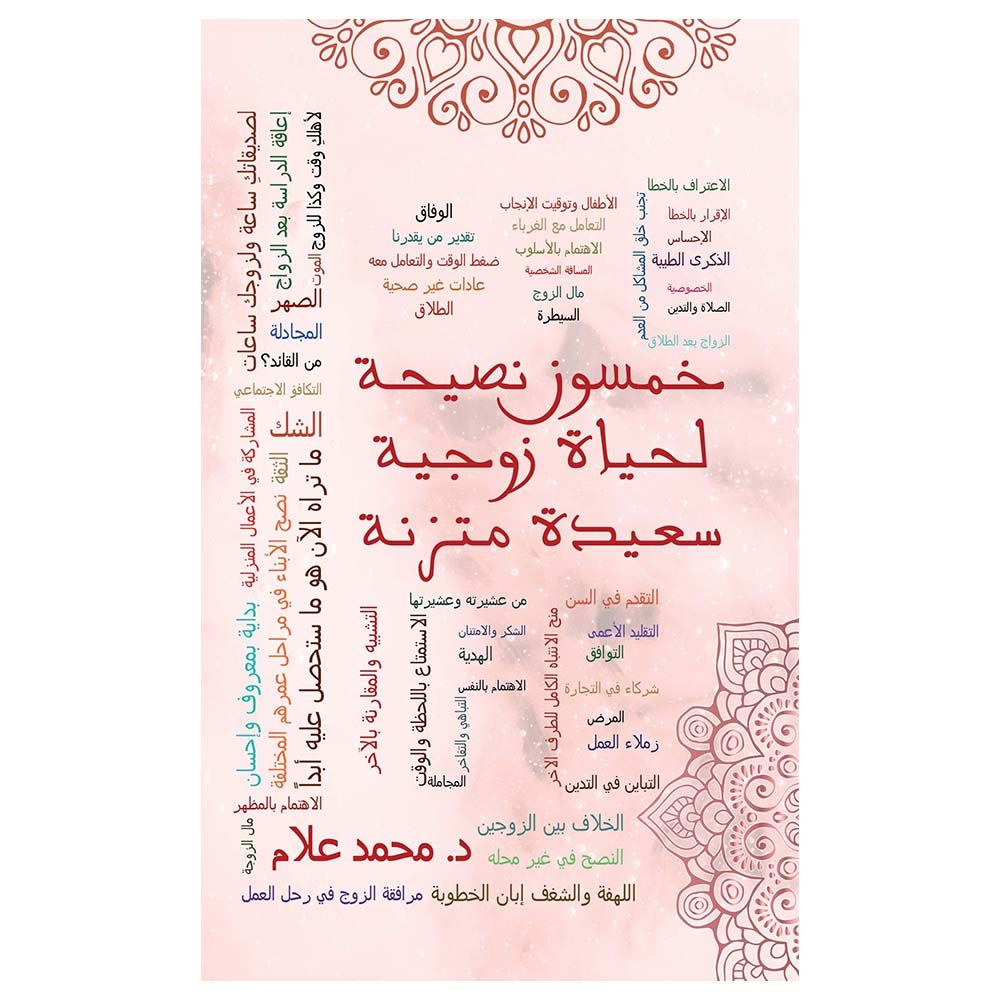 الاعتراف بالخطأ
الإقرار بالخطأ
الإحساس
الذكرى الطيبة
الخصوصية
الصلاة والتدين
الزواج بعد الطلاق
تجنب خلق المشاكل من العدم
الأطفال وتوقيت الإنجاب
التعامل مع الغرباء
الاهتمام بالأسلوب
المسافة الشخصية
مال الزوج
السيطرة
الوفاق
تقدير من يقدرنا
ضغط الوقت والتعامل معه
عادات غير صحية
الطلاق
لأهلكِ وقت وكذا للزوج
الموت
إعاقة الدراسة بعد الزواج
لصديقاتكِ ساعة ولزوجك ساعات
الصهر
المجادلة
من القائد؟
التكافؤ الاجتماعي
خمسون نصيحة
لحياة زوجية
سعيدة متزنة
الشك
الثقة
ما تراه الآن هو ما ستحصل عليه أبداً
نصح الأبناء في مراحل عمرهم المختلفة
المشاركة في الأعمال المنزلية
بداية بمعروف وإحسان
التقدم في السن
التقليد الأعمى
التوافق
شركاء في التجارة
المرض
زملاء العمل
التباين في التدين
منح الانتباه الكامل للطرف الآخر
من عشيرته وعشيرتها
الشكر والامتنان
الهدية
الاهتمام بالنفس
التباهي والتفاخر
المجاملة
الاستمتاع باللحظة والوقت
التشبيه والمقارنة بالآخر
الاهتمام بالمظهر
مال الزوجة
الخلاف بين الزوجين
النصح في غير محله
د. محمد علام
اللهفة والشغف إبان الخطوبة
مرافقة الزوج في رحل العمل